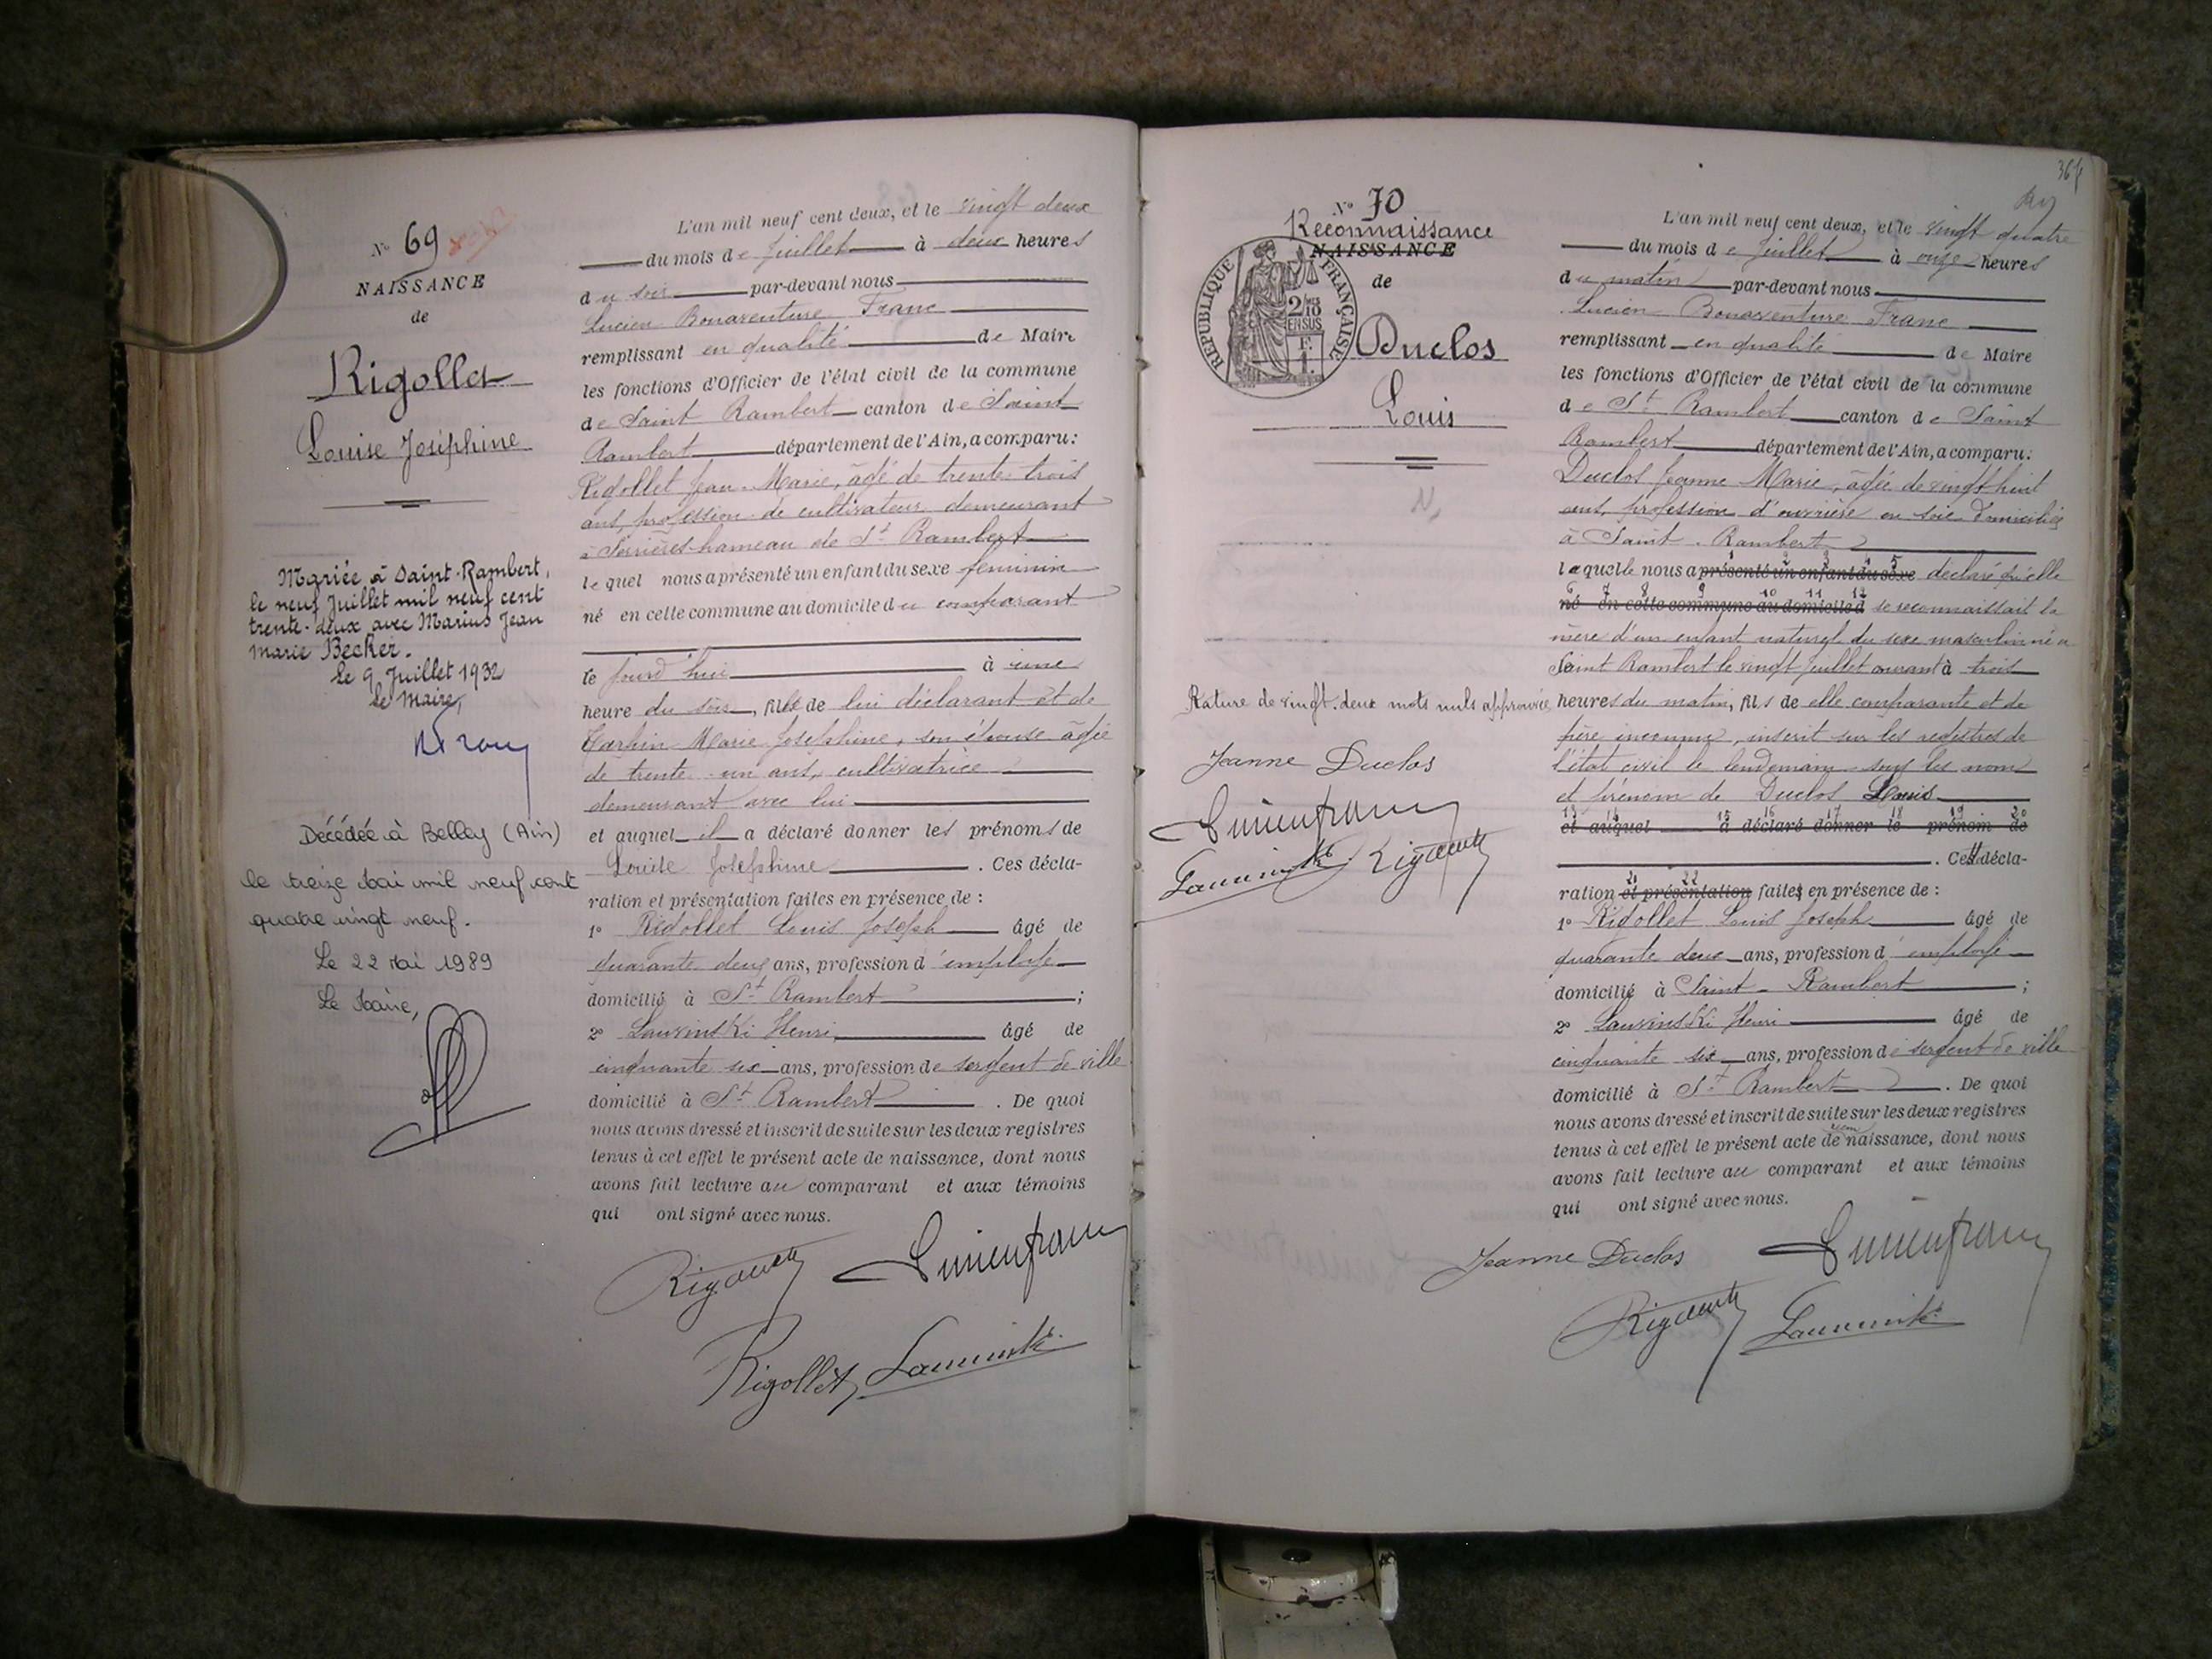 N° 69
NAISSANCE
de
Rigollet
Louise Joséphine
Mariée à Saint-Rambert,
le neuf Juillet mil neuf cent
trente-deux avec Marius Jean
marie Becker.
Le 9 Juillet 1932
Le Maire,
Décédée à Belley (Ain)
le treize Mai mil neuf cent
quatre vingt neuf.
Le 22 Mai 1989
Le Maire,
L'an mil neuf cent deux, et le vingt deux
du mois de Juillet à deux heures
du soir par-devant nous
Lucien Bonaventure Franc
remplissant en qualité de Maire
les fonctions d'Officier de l'état civil de la commune
de Saint Rambert canton de Saint
Rambert département de l'Ain, a comparu:
Rigollet Jean-Marie, âgé de trente-trois
ans, profession de cultivateur demeurant
à Serrières hameau de St Rambert
lequel nous a présenté un enfant du sexe féminin
né en cette commune au domicile du comparant
le jourd'hui à une
heure du soir, fille de lui déclarant et de
Marie Joséphine, son épouse âgée
de trente-un ans, cultivatrice
demeurant avec lui
et auquel il a déclaré donner les prénoms de
Louise Joséphine. Ces décla-
ration et présentation faites en présence de :
1° Rigollet Louis Joseph âgé de
quarante deux ans, profession d'employé
domicilié à St Rambert ;
2° Lauvinski Henri âgé de
cinquante six ans, profession de sergent de ville
domicilié à St Rambert. De quoi
nous avons dressé et inscrit de suite sur les deux registres
tenus à cet effet le présent acte de naissance, dont nous
avons fait lecture au comparant et aux témoins
qui ont signé avec nous.
Lucien franc
Rigollet
364
N° 70
Reconnaissance
NAISSANCE
de
REPUBLIQUE FRANÇAISE
2/10 EN SUS
Duclos
Louis
Rature de vingt-deux mots nuls approuvée
Jeanne Duclos
Lucien franc
L'an mil neuf cent deux, et le vingt quatre
du mois de Juillet à onze heures
du matin par-devant nous
Lucien Bonaventure Franc
remplissant en qualité de Maire
les fonctions d'Officier de l'état civil de la commune
de St Rambert canton de Saint
Rambert département de l'Ain, a comparu:
Duclos Jeanne Marie, âgée de vingt huit
ans, profession d'ouvrière en soie domiciliée
à Saint-Rambert
1 2 3 4 5
laquelle nous a présenté un enfant du sexe déclaré qu'elle
6 7 8 9 10 11 12
né en cette commune au domicile d se reconnaissait la
mère d'un enfant naturel du sexe masculin né a
Saint Rambert le vingt Juillet courant à trois
heures du matin, fils de elle comparante et de
père inconnu, inscrit sur les registres de
l'état civil le lendemain sous les nom
et prénom de Duclos Louis
13 14 15 16 17 18 19 20
et auquel a déclaré donner le prénom de
. Cette décla-
21 22
ration et présentation faite en présence de :
1° Rigollet Louis Joseph âgé de
quarante deux ans, profession d'employé
domicilié à Saint-Rambert ;
2° Lauvinski Henri âgé de
cinquante six ans, profession de sergent de ville
domicilié à St Rambert. De quoi
nous avons dressé et inscrit de suite sur les deux registres
tenus à cet effet le présent acte de naissance, dont nous
avons fait lecture au comparant et aux témoins
qui ont signé avec nous.
Jeanne Duclos
Lucien franc